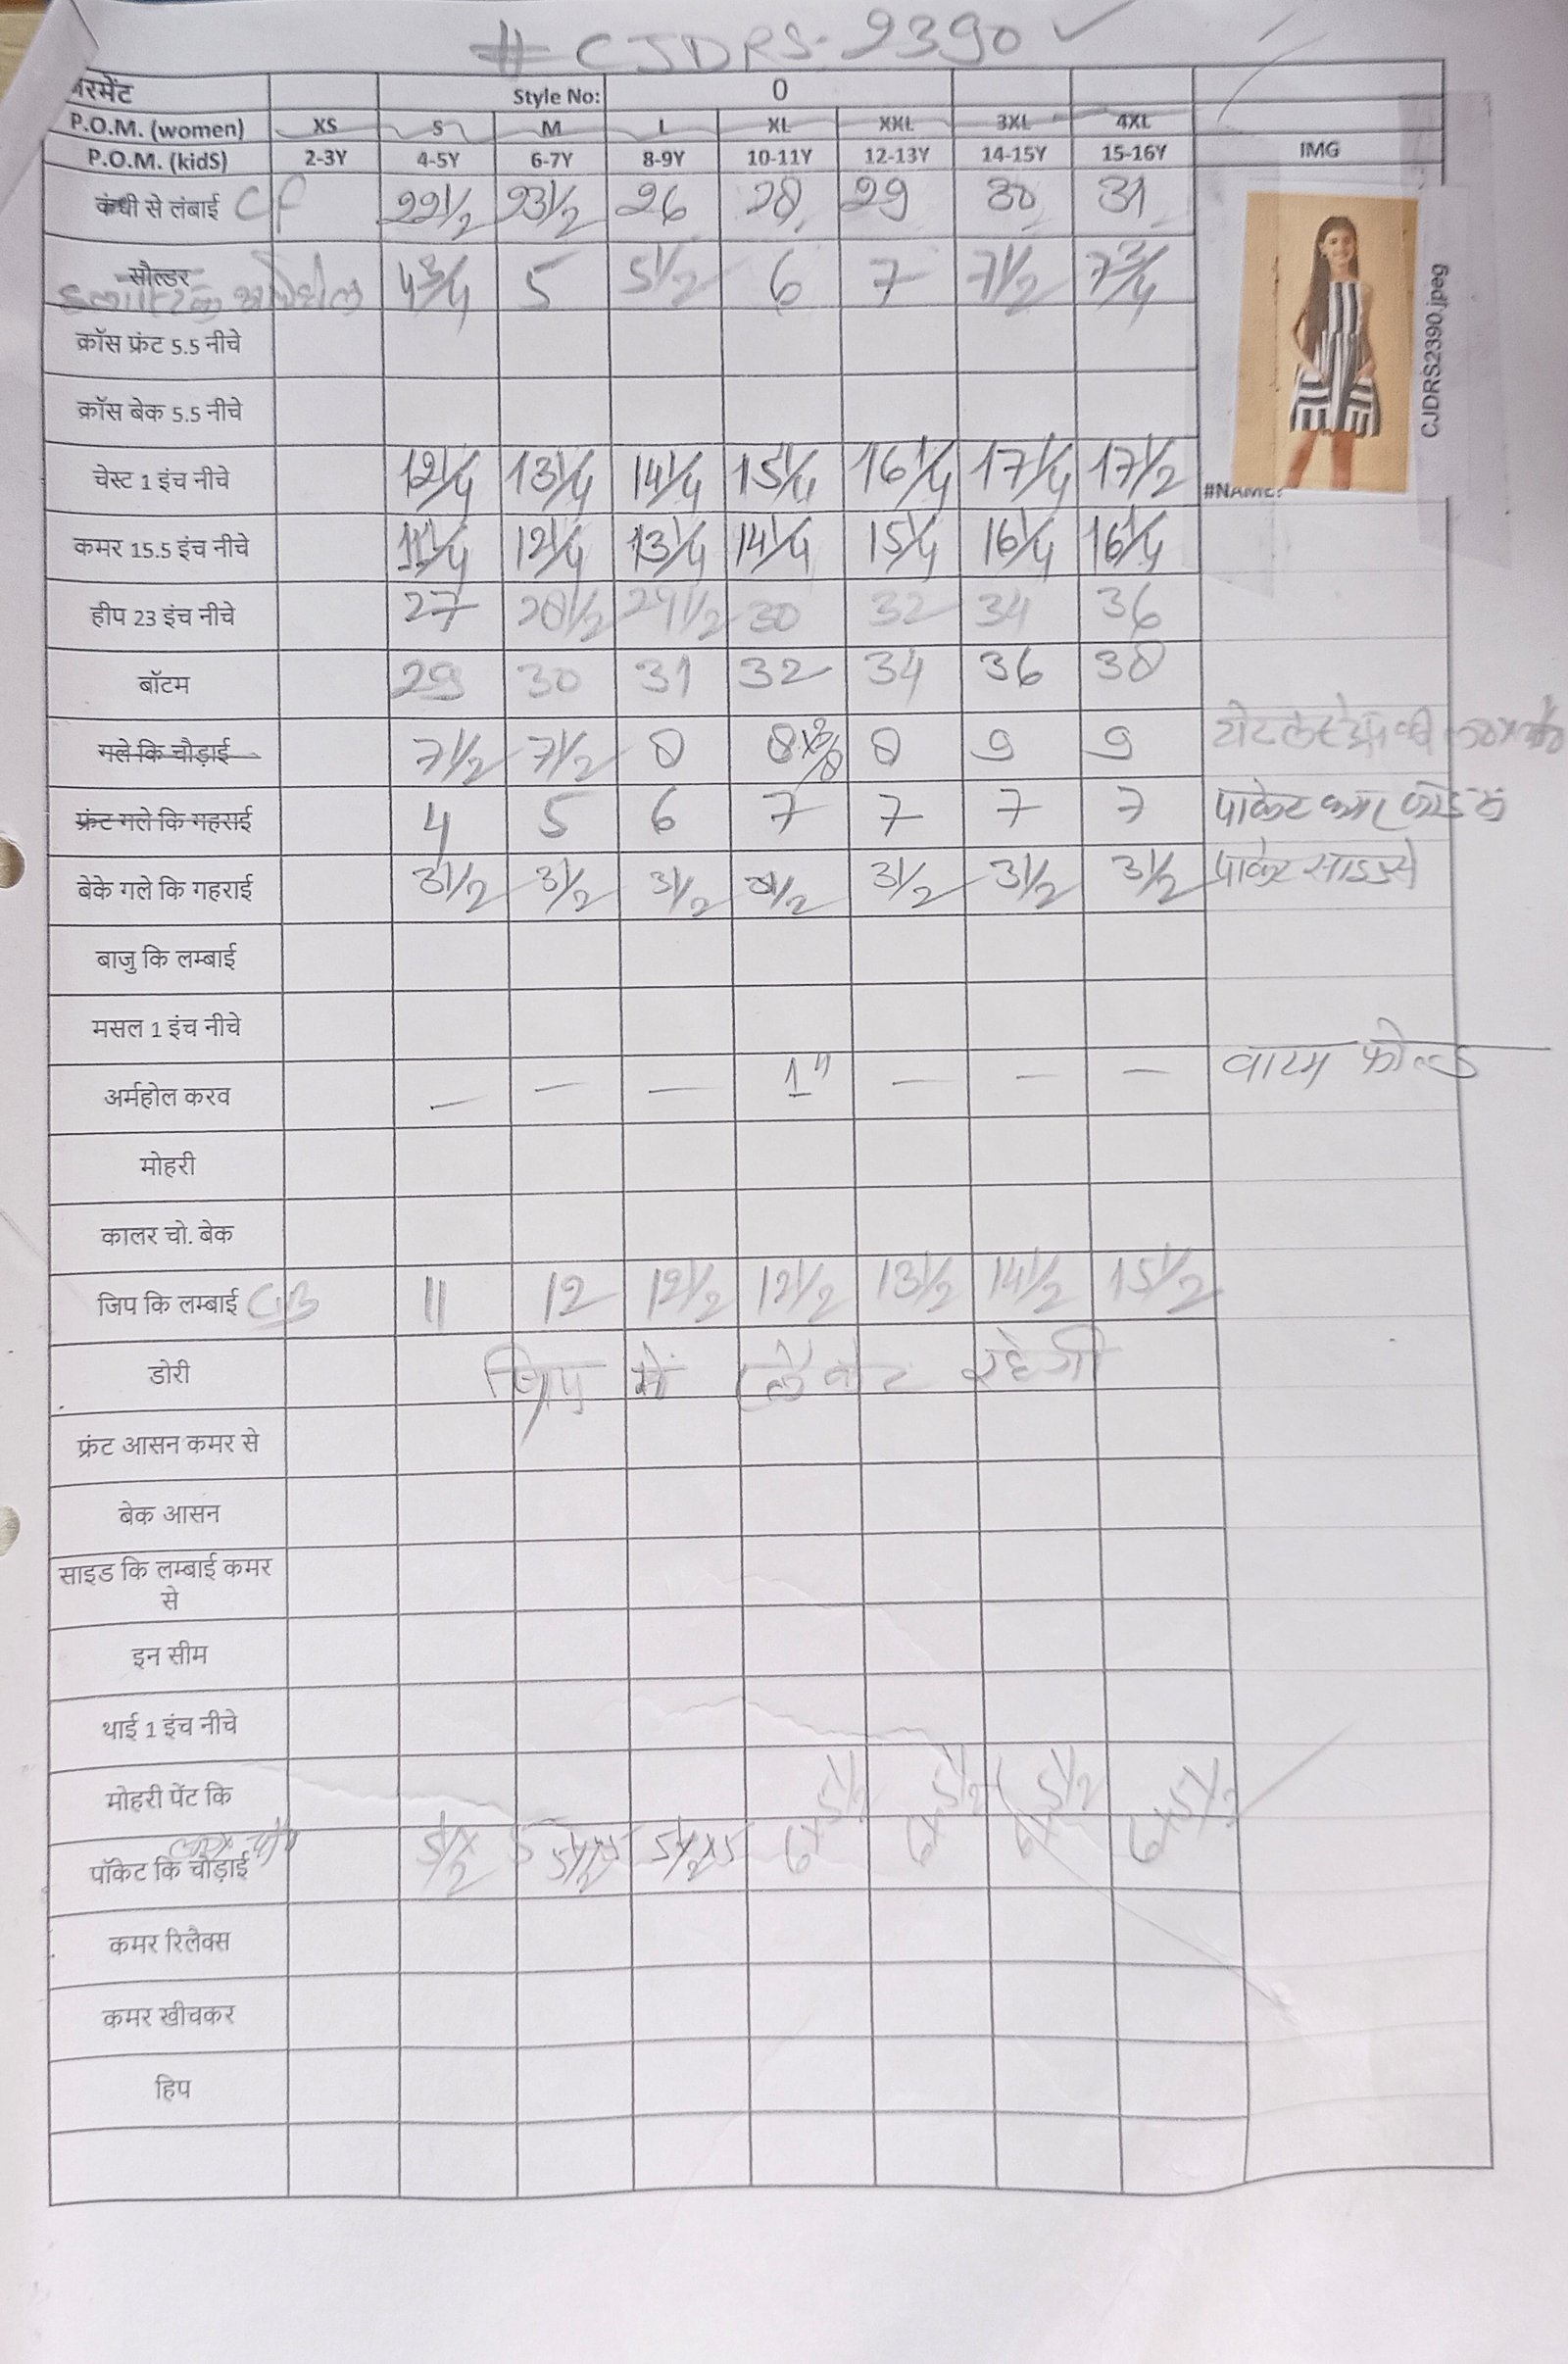 # CJDRS-2390 ✓
रमेंट Style No: 0
P.O.M. (women) XS S M L XL XXL 3XL 4XL
P.O.M. (kidS) 2-3Y 4-5Y 6-7Y 8-9Y 10-11Y 12-13Y 14-15Y 15-16Y IMG
कंधी से लंबाई CF 22 1/2 23 1/2 26 28 29 30 31
सौल्डर 4 3/4 5 5 1/2 6 7 7 1/2 7 3/4
CJDRS2390.jpeg
क्रॉस फ्रंट 5.5 नीचे
क्रॉस बेक 5.5 नीचे
चेस्ट 1 इंच नीचे 12 1/4 13 1/4 14 1/4 15 1/4 16 1/4 17 1/4 17 1/2 #NAME?
कमर 15.5 इंच नीचे 11 1/4 12 1/4 13 1/4 14 1/4 15 1/4 16 1/4 16 1/4
हीप 23 इंच नीचे 27 28 1/2 29 1/2 30 32 34 36
बॉटम 29 30 31 32 34 36 38
गले कि चौड़ाई 7 1/2 7 1/2 8 8 8 9 9
फ्रंट गले कि गहराई 4 5 6 7 7 7 7 पाकेट
बेके गले कि गहराई 3 1/2 3 1/2 3 1/2 3 1/2 3 1/2 3 1/2 3 1/2 पाकेट साइज
बाजु कि लम्बाई
मसल 1 इंच नीचे
अर्महोल करव — — — 1" — — — वाटम फोल्ड
मोहरी
कालर चो. बेक
जिप कि लम्बाई CB 11 12 12 1/2 12 1/2 13 1/2 14 1/2 15 1/2
डोरी जिप में रहेगी
फ्रंट आसन कमर से
बेक आसन
साइड कि लम्बाई कमर
से
इन सीम
थाई 1 इंच नीचे
मोहरी पेंट कि
पॉकेट कि चौड़ाई 5 1/2 5 5 1/2 x 5 5 1/2 x 5 6 x 5 1/2 6 x 5 1/2 6 x 5 1/2 6 x 5 1/2
कमर रिलैक्स
कमर खीचकर
हिप